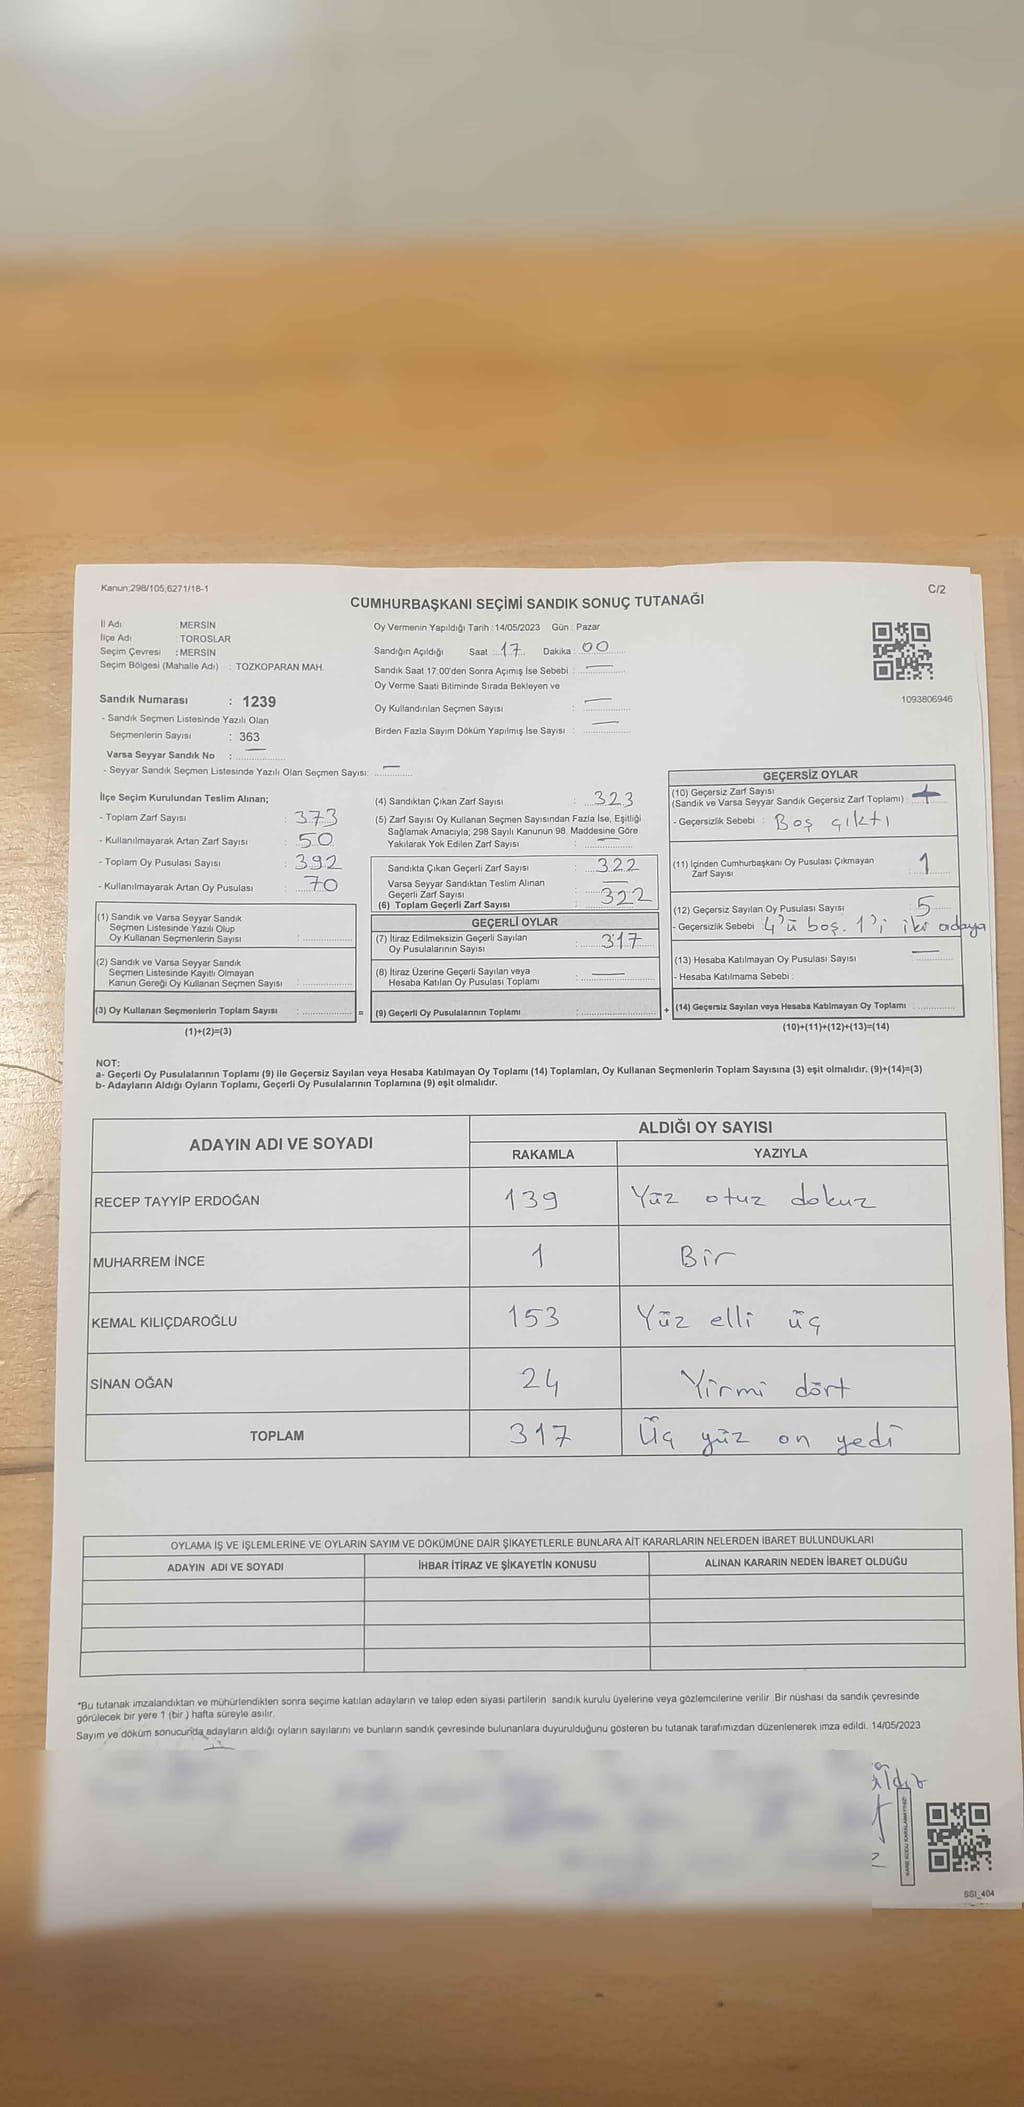 Kanun;298/105;6271/18-1
C/2
CUMHURBAŞKANI SEÇİMİ SANDIK SONUÇ TUTANAĞI
İl Adı : MERSİN
İlçe Adı : TOROSLAR
Seçim Çevresi : MERSİN
Seçim Bölgesi (Mahalle Adı) : TOZKOPARAN MAH.
Sandık Numarası : 1239
- Sandık Seçmen Listesinde Yazılı Olan
Seçmenlerin Sayısı : 363
Varsa Seyyar Sandık No : —
- Seyyar Sandık Seçmen Listesinde Yazılı Olan Seçmen Sayısı: —
Oy Vermenin Yapıldığı Tarih : 14/05/2023 Gün : Pazar
Sandığın Açıldığı Saat : 17 Dakika : 00
Sandık Saat 17:00'den Sonra Açımış İse Sebebi : —
Oy Verme Saati Bitiminde Sırada Bekleyen ve
Oy Kullandırılan Seçmen Sayısı : —
Birden Fazla Sayım Döküm Yapılmış İse Sayısı : —
1093806946
İlçe Seçim Kurulundan Teslim Alınan;
- Toplam Zarf Sayısı : 373
- Kullanılmayarak Artan Zarf Sayısı : 50
- Toplam Oy Pusulası Sayısı : 392
- Kullanılmayarak Artan Oy Pusulası : 70
(1) Sandık ve Varsa Seyyar Sandık
Seçmen Listesinde Yazılı Olup
Oy Kullanan Seçmenlerin Sayısı :
(2) Sandık ve Varsa Seyyar Sandık
Seçmen Listesinde Kayıtlı Olmayan
Kanun Gereği Oy Kullanan Seçmen Sayısı :
(3) Oy Kullanan Seçmenlerin Toplam Sayısı : =
(1)+(2)=(3)
(4) Sandıktan Çıkan Zarf Sayısı : 323
(5) Zarf Sayısı Oy Kullanan Seçmen Sayısından Fazla İse, Eşitliği
Sağlamak Amacıyla; 298 Sayılı Kanunun 98. Maddesine Göre
Yakılarak Yok Edilen Zarf Sayısı : —
Sandıkta Çıkan Geçerli Zarf Sayısı : 322
Varsa Seyyar Sandıktan Teslim Alınan
Geçerli Zarf Sayısı : —
(6) Toplam Geçerli Zarf Sayısı : 322
GEÇERLİ OYLAR
(7) İtiraz Edilmeksizin Geçerli Sayılan
Oy Pusulalarının Sayısı : 317
(8) İtiraz Üzerine Geçerli Sayılan veya
Hesaba Katılan Oy Pusulası Toplamı : —
(9) Geçerli Oy Pusulalarının Toplamı : +
GEÇERSİZ OYLAR
(10) Geçersiz Zarf Sayısı
(Sandık ve Varsa Seyyar Sandık Geçersiz Zarf Toplamı) :
- Geçersizlik Sebebi : Boş çıktı
(11) İçinden Cumhurbaşkanı Oy Pusulası Çıkmayan
Zarf Sayısı : 1
(12) Geçersiz Sayılan Oy Pusulası Sayısı : 5
- Geçersizlik Sebebi 4'ü boş. 1'i iki adaya
(13) Hesaba Katılmayan Oy Pusulası Sayısı : —
- Hesaba Katılmama Sebebi :
(14) Geçersiz Sayılan veya Hesaba Katılmayan Oy Toplamı :
(10)+(11)+(12)+(13)=(14)
NOT:
a- Geçerli Oy Pusulalarının Toplamı (9) ile Geçersiz Sayılan veya Hesaba Katılmayan Oy Toplamı (14) Toplamları, Oy Kullanan Seçmenlerin Toplam Sayısına (3) eşit olmalıdır. (9)+(14)=(3)
b- Adayların Aldığı Oyların Toplamı, Geçerli Oy Pusulalarının Toplamına (9) eşit olmalıdır.
ADAYIN ADI VE SOYADI
ALDIĞI OY SAYISI
RAKAMLA YAZIYLA
RECEP TAYYİP ERDOĞAN 139 Yüz otuz dokuz
MUHARREM İNCE 1 Bir
KEMAL KILIÇDAROĞLU 153 Yüz elli üç
SİNAN OĞAN 24 Yirmi dört
TOPLAM 317 Üç yüz on yedi
OYLAMA İŞ VE İŞLEMLERİNE VE OYLARIN SAYIM VE DÖKÜMÜNE DAİR ŞİKAYETLERLE BUNLARA AİT KARARLARIN NELERDEN İBARET BULUNDUKLARI
ADAYIN ADI VE SOYADI İHBAR İTİRAZ VE ŞİKAYETİN KONUSU ALINAN KARARIN NEDEN İBARET OLDUĞU
*Bu tutanak imzalandıktan ve mühürlendikten sonra seçime katılan adayların ve talep eden siyasi partilerin sandık kurulu üyelerine veya gözlemcilerine verilir .Bir nüshası da sandık çevresinde
görülecek bir yere 1 (bir ) hafta süreyle asılır.
Sayım ve döküm sonucunda adayların aldığı oyların sayılarını ve bunların sandık çevresinde bulunanlara duyurulduğunu gösteren bu tutanak tarafımızdan düzenlenerek imza edildi. 14/05/2023
KARE KODU KARALAMAYINIZ!
SSI_404